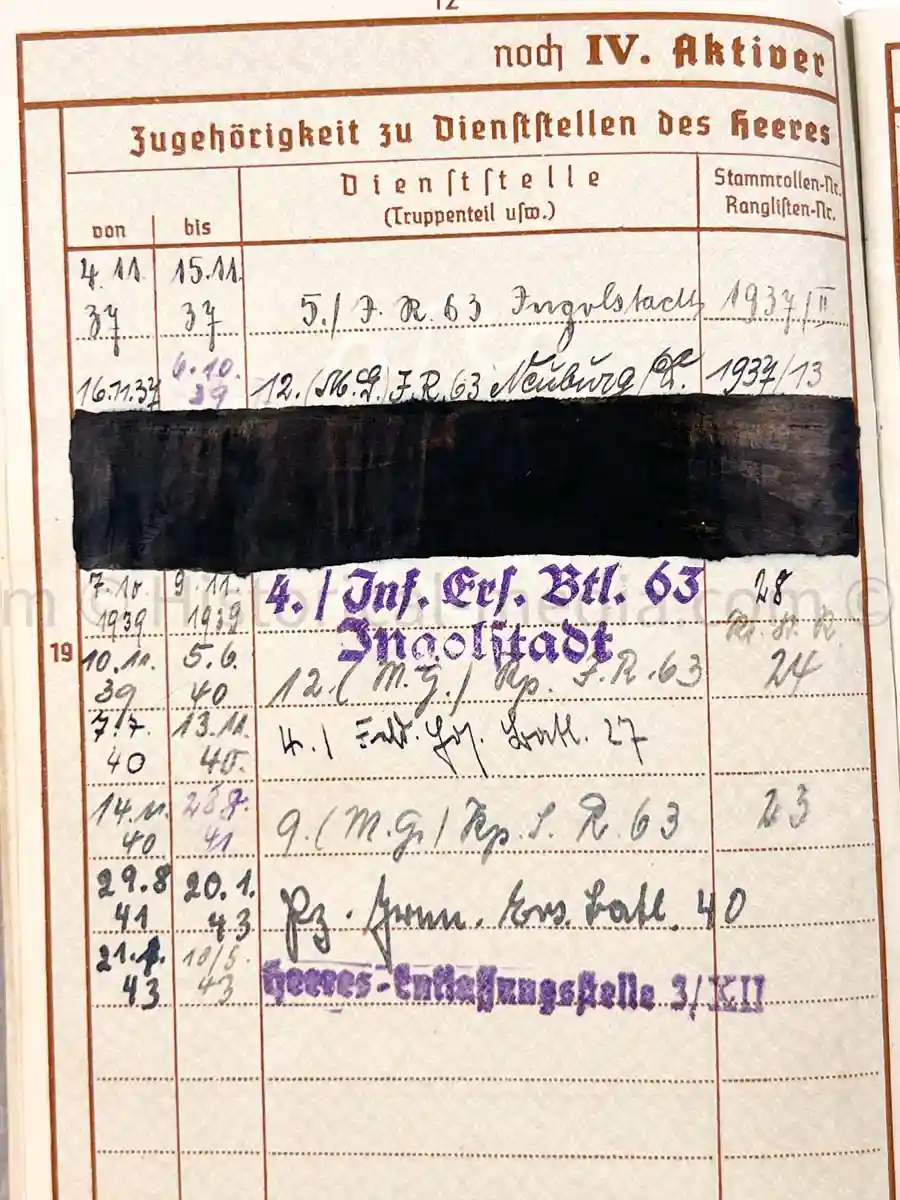 12
noch IV. Aktiver
Zugehörigkeit zu Dienststellen des Heeres
von
bis
Dienststelle
(Truppenteil usw.)
Stammrollen-Nr.
Ranglisten-Nr.
4.11. 15.11.
37 37 5./ J. R. 63 Ingolstadt 1937/II
6.10.
16.11.37 39 12. (M.G.) J.R. 63 Neuburg 1937/13
7.10. 9.11. 4./ Inf. Ers. Btl. 63 28
1939 1939 Ingolstadt
19
10.11. 5.6.
39 40 12. (M.G.) Kp. J.R. 63 24
7.7. 13.11.
40 40. 4./ Feld. Batl. 27
14.11. 28.8.
40 41 9. (M.G.) Kp. S. R. 63 23
29.8 20.1.
41 43 Pz. Gren. Ers. Batl. 40
21.1. 10/5.
43 43 Heeres-Entlassungsstelle 3/XII